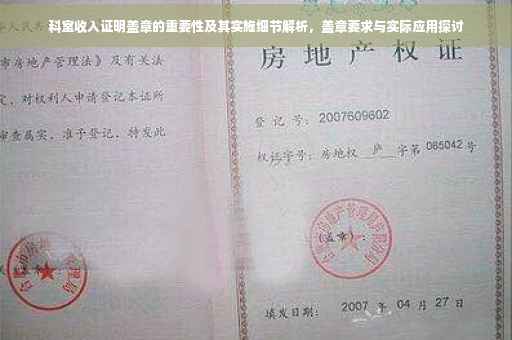 科室收入证明盖章的重要性及其实施细节解析，盖章要求与实际应用探讨
华人民
市房地产管理法》及有关
定，对权利人申请登记本证所
审查属实，准予登记，特发此
房地产权证
登 记 号：2007609602
权证字号：房地权 庐 字第 065042 号
（盖章）：
填发日期：2007 年 04 月 27 日